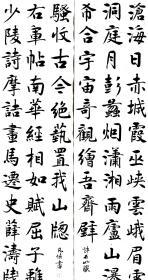 滄海日赤城霞巫峽雲峨眉雪
洞庭月彭蠡烟瀟湘雨廬山瀑
布合宇宙奇觀繪吾齋壁
少陵詩摩詰畫馬遷史薛濤箋
右軍帖南華經相如賦屈子離
騷收古今絕藝置我山牕